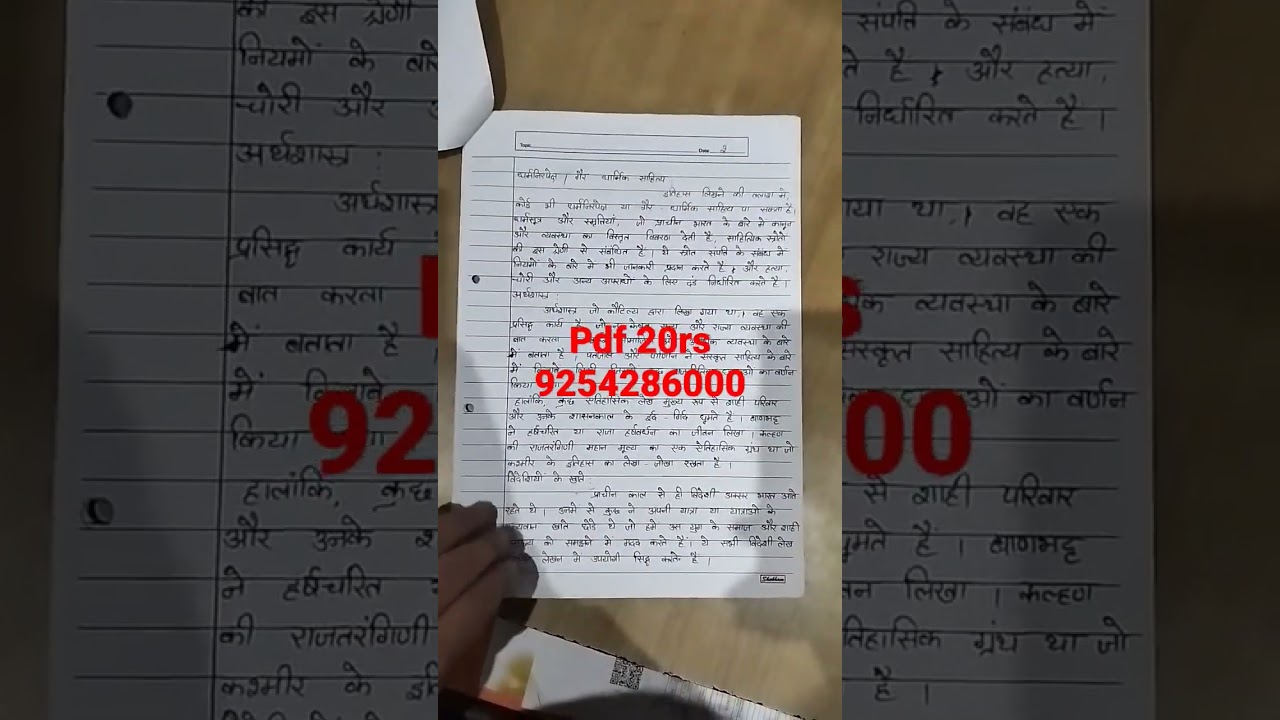 Topic
Date 2
धर्मनिरपेक्ष / गैर धार्मिक साहित्य
इतिहास लिखने की तलाश में,
कोई भी धर्मनिरपेक्ष या गैर धार्मिक साहित्य पा सकता है।
धर्मसूत्र और स्मृतियां, जो प्राचीन भारत के बारे में कानून
और व्यवस्था का विस्तृत विवरण देती है, साहित्यिक स्त्रोतों
की इस श्रेणी से संबंधित है। ये स्त्रोत संपति के संबंध में
नियमों के बारे में भी जानकारी प्रदान करते है, और हत्या,
चोरी और अन्य अपराधों के लिए दंड निर्धारित करते है।
अर्थशास्त्र :
अर्थशास्त्र जो कौटिल्य द्वारा लिखा गया था, वह एक
प्रसिद्ध कार्य है जो न केवल राज्य और राज्य व्यवस्था की
बात करता व्यवस्था के बारे
में बताता है पतंजलि और पाणिनि ने संस्कृत साहित्य के बारे
में का वर्णन
किया
Pdf 20rs
9254286000
हालांकि, कुछ ऐतिहासिक लेख मुख्य रूप से शाही परिवार
और उनके शासनकाल के इर्द गिर्द घूमते है। बाणभट्ट
ने हर्षचरित या राजा हर्षवर्धन का जीवन लिखा। कल्हण
की राजतरंगिणी महान मूल्य का एक ऐतिहासिक ग्रंथ था जो
कश्मीर के इतिहास का लेखा-जोखा रखता है।
विदेशियों के खाते :
प्राचीन काल से ही विदेशी अक्सर भारत आते
रहते थे। उनमे से कुछ ने अपनी यात्रा या यात्राओं के
खाते छोडे थे जो हमें उस युग के समाज और शाही
को समझने में मदद करते हैं। ये सभी विदेशी लेख
लेखन मे उपयोगी सिद्ध करते है।
Shubham